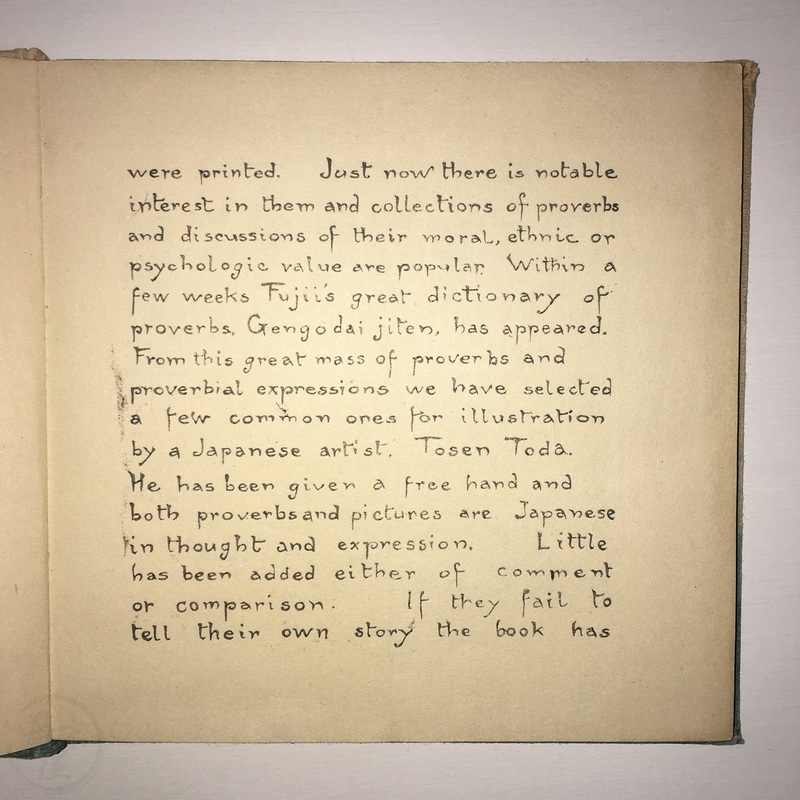 were printed. Just now there is notable
interest in them and collections of proverbs
and discussions of their moral, ethnic or
psychologic value are popular. Within a
few weeks Fujii's great dictionary of
proverbs, Gengo dai jiten, has appeared.
From this great mass of proverbs and
proverbial expressions we have selected
a few common ones for illustration
by a Japanese artist, Tosen Toda.
He has been given a free hand and
both proverbs and pictures are Japanese
in thought and expression. Little
has been added either of comment
or comparison. If they fail to
tell their own story the book has